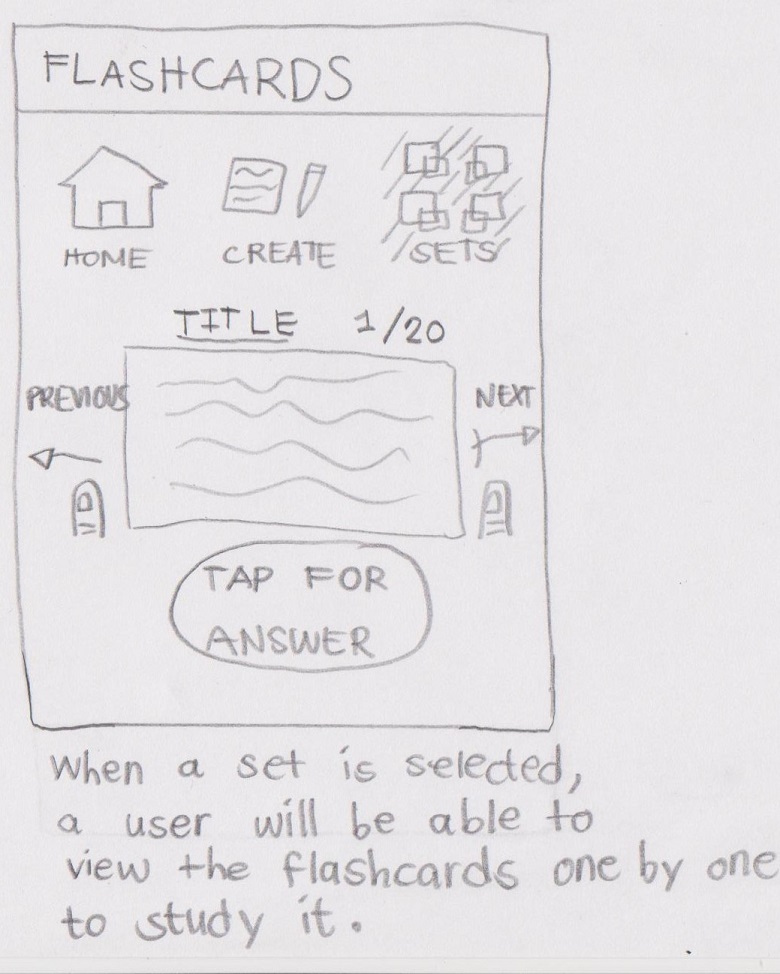 FLASHCARDS
HOME CREATE SETS
TITLE 1/20
PREVIOUS NEXT
TAP FOR
ANSWER
When a set is selected,
a user will be able to
view the flashcards one by one
to study it.